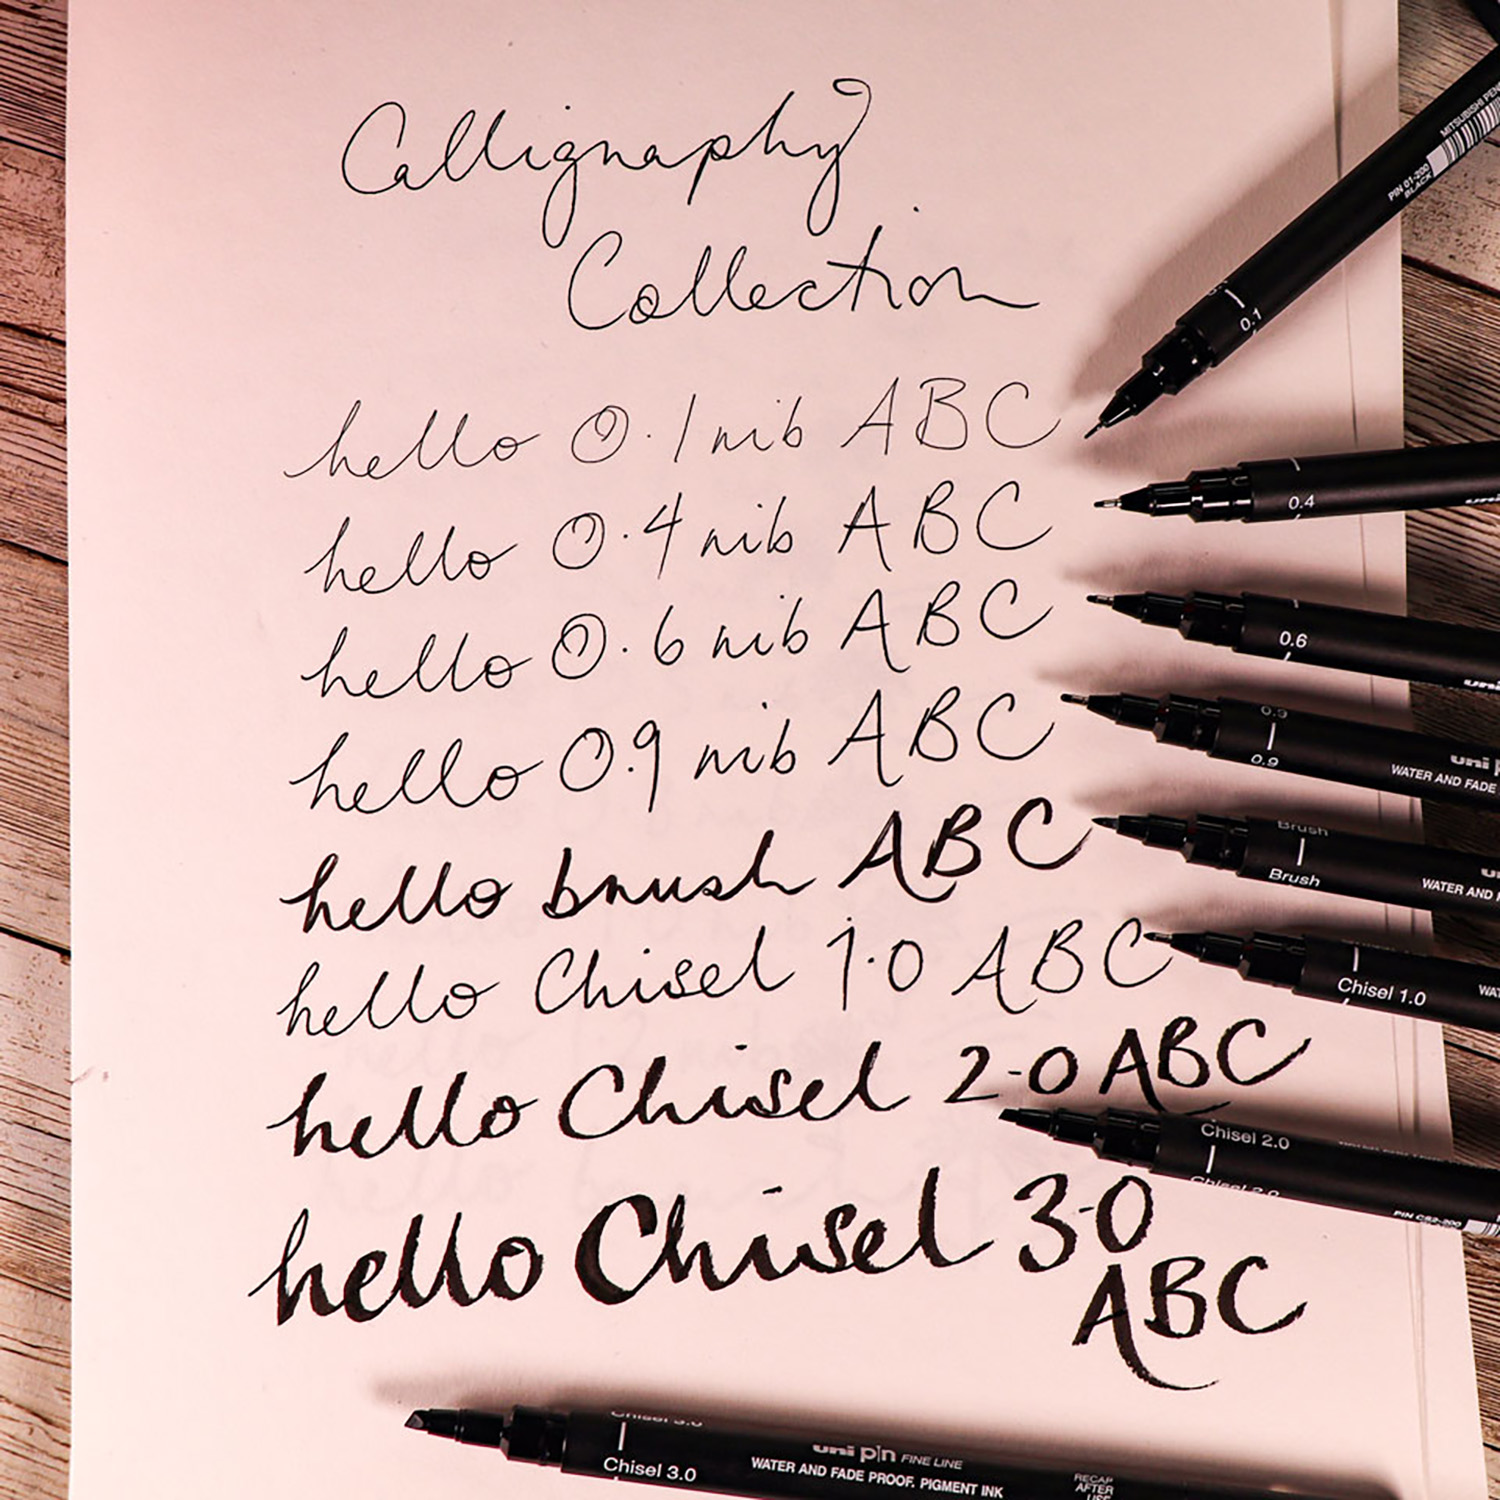 Calligraphy
Collection
hello 0.1 nib ABC
hello 0.4 nib ABC
hello 0.6 nib ABC
hello 0.9 nib ABC
hello brush ABC
hello Chisel 1.0 ABC
hello Chisel 2.0 ABC
hello Chisel 3.0
ABC
MITSUBISHI PEN
PIN 01-200
BLACK
0.1
0.4
uni
0.6
uni
0.9
0.9
uni
WATER AND FADE
Brush
Brush
WATER AND
Chisel 1.0
Chisel 2.0
Chisel 2.0
PIN CS2-200
Chisel 3.0
Chisel 3.0
uni pin FINE LINE
WATER AND FADE PROOF. PIGMENT INK
RECAP
AFTER
USE